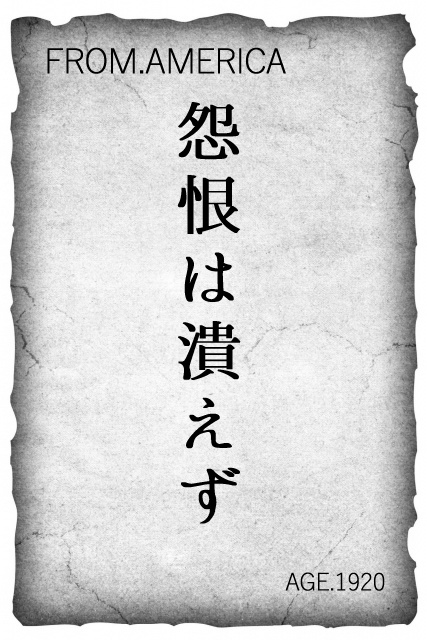 FROM.AMERICA
怨恨は潰えず
AGE.1920